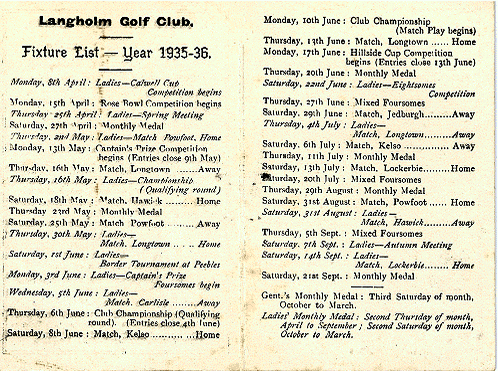 Langholm Golf Club.
Fixture List — Year 1935-36.
Monday, 8th April : Ladies—Calwell Cup
Competition begins
Monday, 15th April : Rose Bowl Competition begins
Thursday 25th April : Ladies—Spring Meeting
Saturday, 27th April : Monthly Medal
Thursday, 2nd May : Ladies—Match Powfoot, Home
Monday, 13th May : Captain's Prize Competition
begins (Entries close 9th May)
Thursday, 16th May : Match, Longtown ......Away
Thursday, 16th May : Ladies—Championship
(Qualifying round)
Saturday, 18th May : Match, Hawick ............Home
Thursday 23rd May : Monthly Medal
Saturday, 25th May : Match Powfoot ......Away
Thursday, 30th May : Ladies—
Match. Longtown .. .. .. Home
Saturday, 1st June : Ladies—
Border Tournament at Peebles
Monday, 3rd June : Ladies—Captain's Prize
Foursomes begin
Wednesday, 5th June : Ladies—
Match. Carlisle ......Away
Thursday, 6th June : Club Championship (Qualifying
round). (Entries close 4th June)
Saturday, 8th June : Match, Kelso ............Home
Monday, 10th June : Club Championship
(Match Play begins)
Thursday, 13th June : Match, Longtown ...... Home
Monday, 17th June : Hillside Cup Competition
begins (Entries close 13th June)
Thursday, 20th June : Monthly Medal
Saturday, 22nd June : Ladies—Eightsomes
Competition
Thursday, 27th June : Mixed Foursomes
Saturday, 29th June : Match, Jedburgh.........Away
Thursday, 4th July : Ladies—
Match, Longtown.........Away
Saturday, 6th July : Match, Kelso ............Away
Thursday, 11th July : Monthly Medal
Saturday, 13th July : Match, Lockerbie.........Home
Thursday, 20th July : Mixed Foursomes
Thursday, 29th August : Monthly Medal
Saturday, 31st August : Match, Powfoot ...... Home
Saturday, 31st August : Ladies—
Match, Hawick.........Away
Thursday, 5th Sept. : Mixed Foursomes
Saturday, 7th Sept. : Ladies—Autumn Meeting
Saturday, 14th Sept. : Ladies—
Match, Lockerbie.........Home
Saturday, 21st Sept. : Monthly Medal
Gent.'s Monthly Medal : Third Saturday of month,
October to March.
Ladies' Monthly Medal : Second Thursday of month,
April to September ; Second Saturday of month,
October to March.